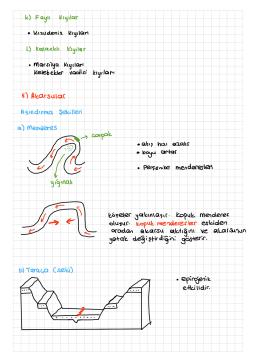 k) Faylı Kıyılar
• Karadeniz Kıyıları
l) Kalanklı Kıyılar
• Marsilya Kıyıları
Kelebekler Vadisi Kıyıları
f) Akarsular
Aşındırma Şekilleri
a) Menderes
çarpak
yığınak
• akış hızı azalır
• boyu artar
• Peşpeşe menderesler
köşeler yakınlaşır kopuk menderes
oluşur. kopuk menderesler eskiden
oradan akarsu aktığını ve akarsuyun
yatak değiştirdiğini gösterir.
b) Taraça (seki)
• epirojenik
etkilidir.